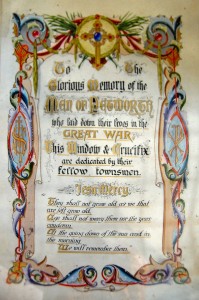 To The
Glorious Memory of the
Men of Petworth
who laid down their lives in the
GREAT WAR
This Window & Crucifix
are dedicated by their
fellow townsmen.
Jesu Mercy.
They shall not grow old, as we that
are left grow old,
Age shall not weary them nor the years
condemn.
At the going down of the sun and in
the morning
We will remember them."